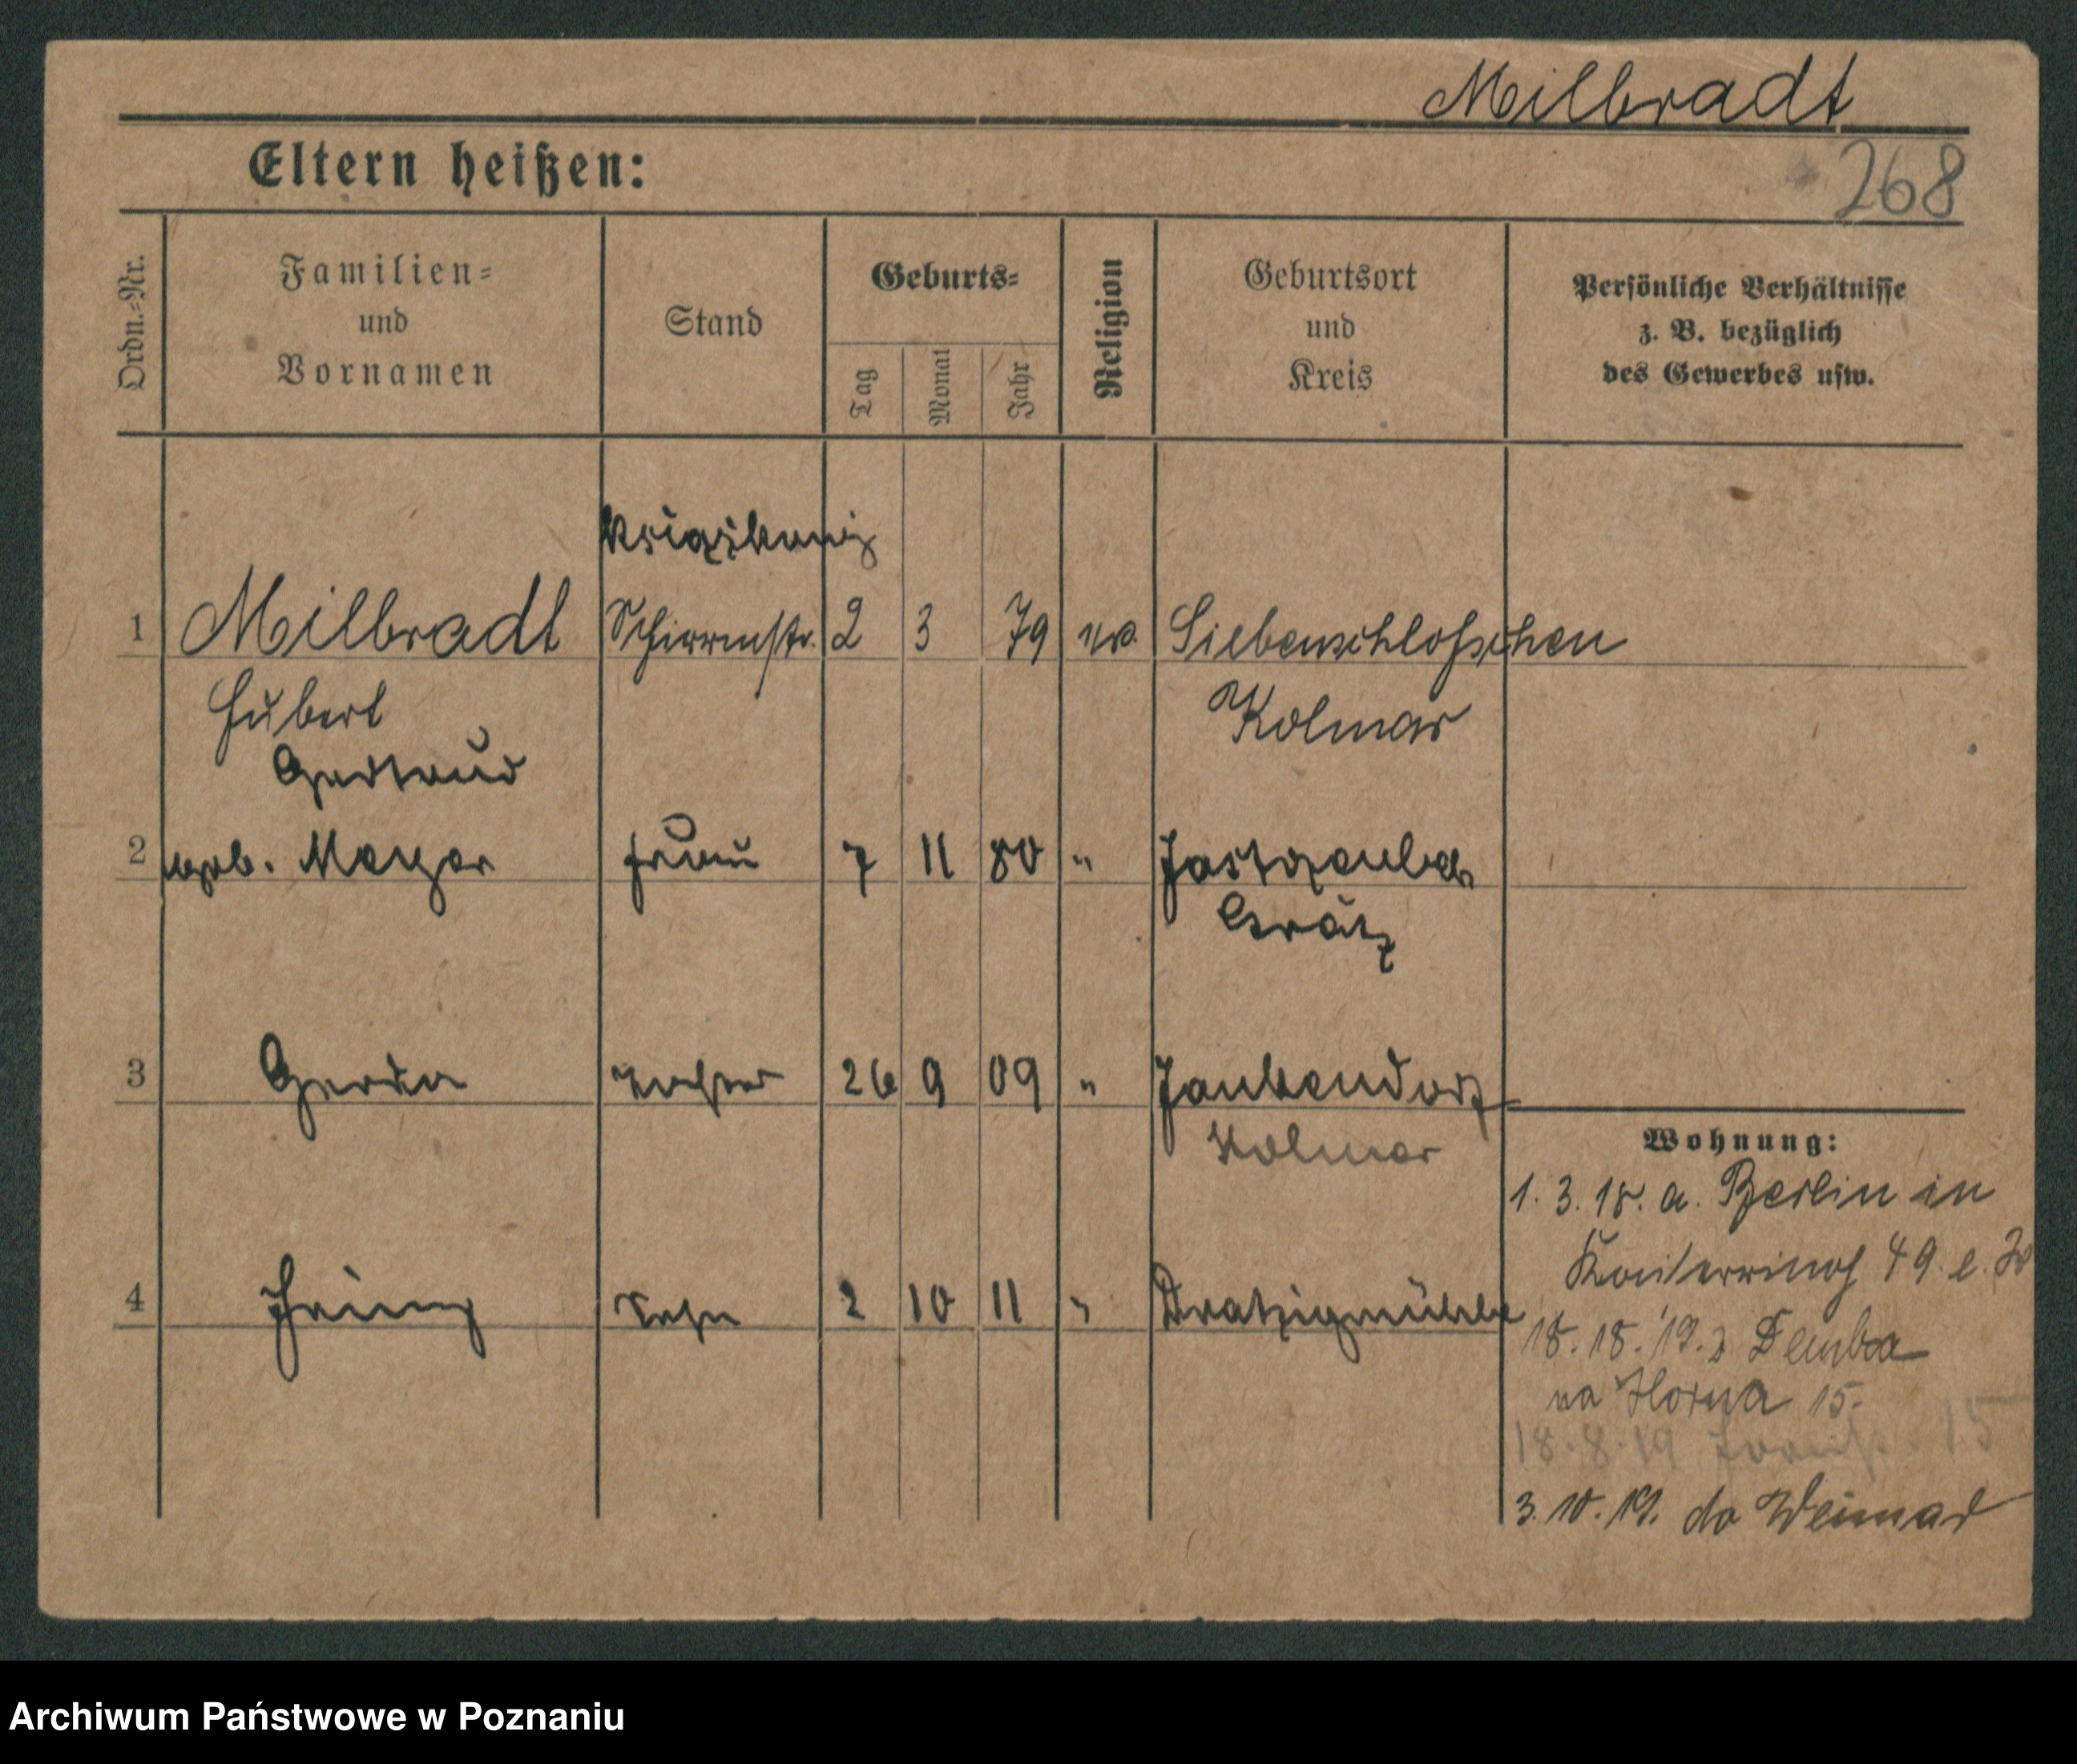 Milbradt
Eltern heißen:
268
Ordn.=Nr.
Familien=
und
Vornamen
Stand
Geburts=
Tag
Monat
Jahr
Religion
Geburtsort
und
Kreis
Persönliche Verhältnisse
z. B. bezüglich
des Gewerbes usw.
1 Milbradt 2 3 79 ev. Siebenschlößchen
Hubert Kolmar
Gertrud
2 geb. Meyer Frau 7 11 80 "
Grätz
3 Gerda Tochter 26 9 09 " Jankendorf
Kolmar
Wohnung:
1. 3. 18. a. Berlin in
49.
4 Sohn 2 10 11 " Dratzigmühle
19. Demba
na 15.
18.8.19 15
3. 10. 19. do Weimar
Archiwum Państwowe w Poznaniu